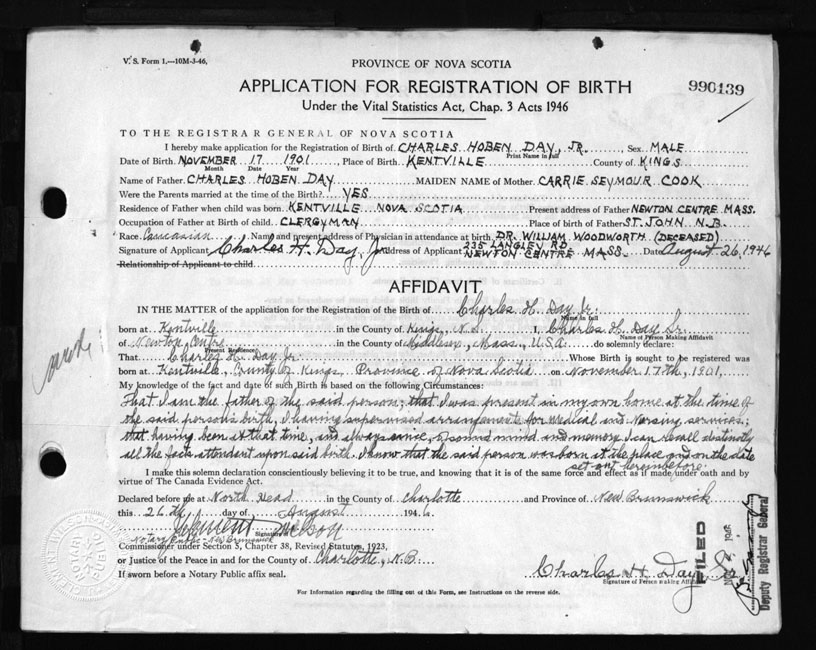 V. S. Form 1.—10M-3-46,
PROVINCE OF NOVA SCOTIA
APPLICATION FOR REGISTRATION OF BIRTH
990139
Under the Vital Statistics Act, Chap. 3 Acts 1946
TO THE REGISTRAR GENERAL OF NOVA SCOTIA
I hereby make application for the Registration of Birth of CHARLES HOBEN DAY, JR. Sex MALE
Print Name in full
Date of Birth NOVEMBER 17 1901 Place of Birth KENTVILLE County of KINGS
Month Date Year
Name of Father CHARLES HOBEN DAY MAIDEN NAME of Mother CARRIE SEYMOUR COOK
Were the Parents married at the time of the Birth? YES
Residence of Father when child was born KENTVILLE NOVA SCOTIA Present address of Father NEWTON CENTRE MASS.
Occupation of Father at Birth of child CLERGYMAN Place of birth of Father ST. JOHN N.B.
Race Caucasian Name and present address of Physician in attendance at birth DR. WILLIAM WOODWORTH (DECEASED)
Signature of Applicant Charles H. Day, Jr. Address of Applicant 235 LANGLEY RD. NEWTON CENTRE MASS. Date August 26, 1946
Relationship of Applicant to child
AFFIDAVIT
IN THE MATTER of the application for the Registration of Birth of Charles H. Day Jr.
Name in full
born at Kentville in the County of Kings, N.S. I, Charles H. Day Sr.
Name of Person Making Affidavit
of Newton Centre in the County of Middlesex, Mass., U.S.A. do solemnly declare:
Present Residence
That Charles H. Day Jr. Whose Birth is sought to be registered was
born at Kentville, County of Kings, Province of Nova Scotia on November 17th, 1901,
My knowledge of the fact and date of such Birth is based on the following Circumstances:
That I am the father of the said person; that I was present in my own home at the time of
the said person's birth, I having supervised arrangements for medical and nursing services;
that having been at that time, and always since, of sound mind and memory I can recall distinctly
all the facts attendant upon said birth. I know that the said person was born at the place and on the date
set out hereinbefore.
I make this solemn declaration conscientiously believing it to be true, and knowing that it is of the same force and effect as if made under oath and by
virtue of The Canada Evidence Act.
Declared before me at North Head in the County of Charlotte and Province of New Brunswick
this 26th day of August 1946.
Signature
Notary Public - New Brunswick
Commissioner under Section 5, Chapter 38, Revised Statutes, 1923,
or Justice of the Peace in and for the County of Charlotte, N.B.
If sworn before a Notary Public affix seal.
Charles H. Day Sr.
Signature of Person making Affidavit
FILED
Deputy Registrar General
For Information regarding the filling out of this Form, see Instructions on the reverse side.